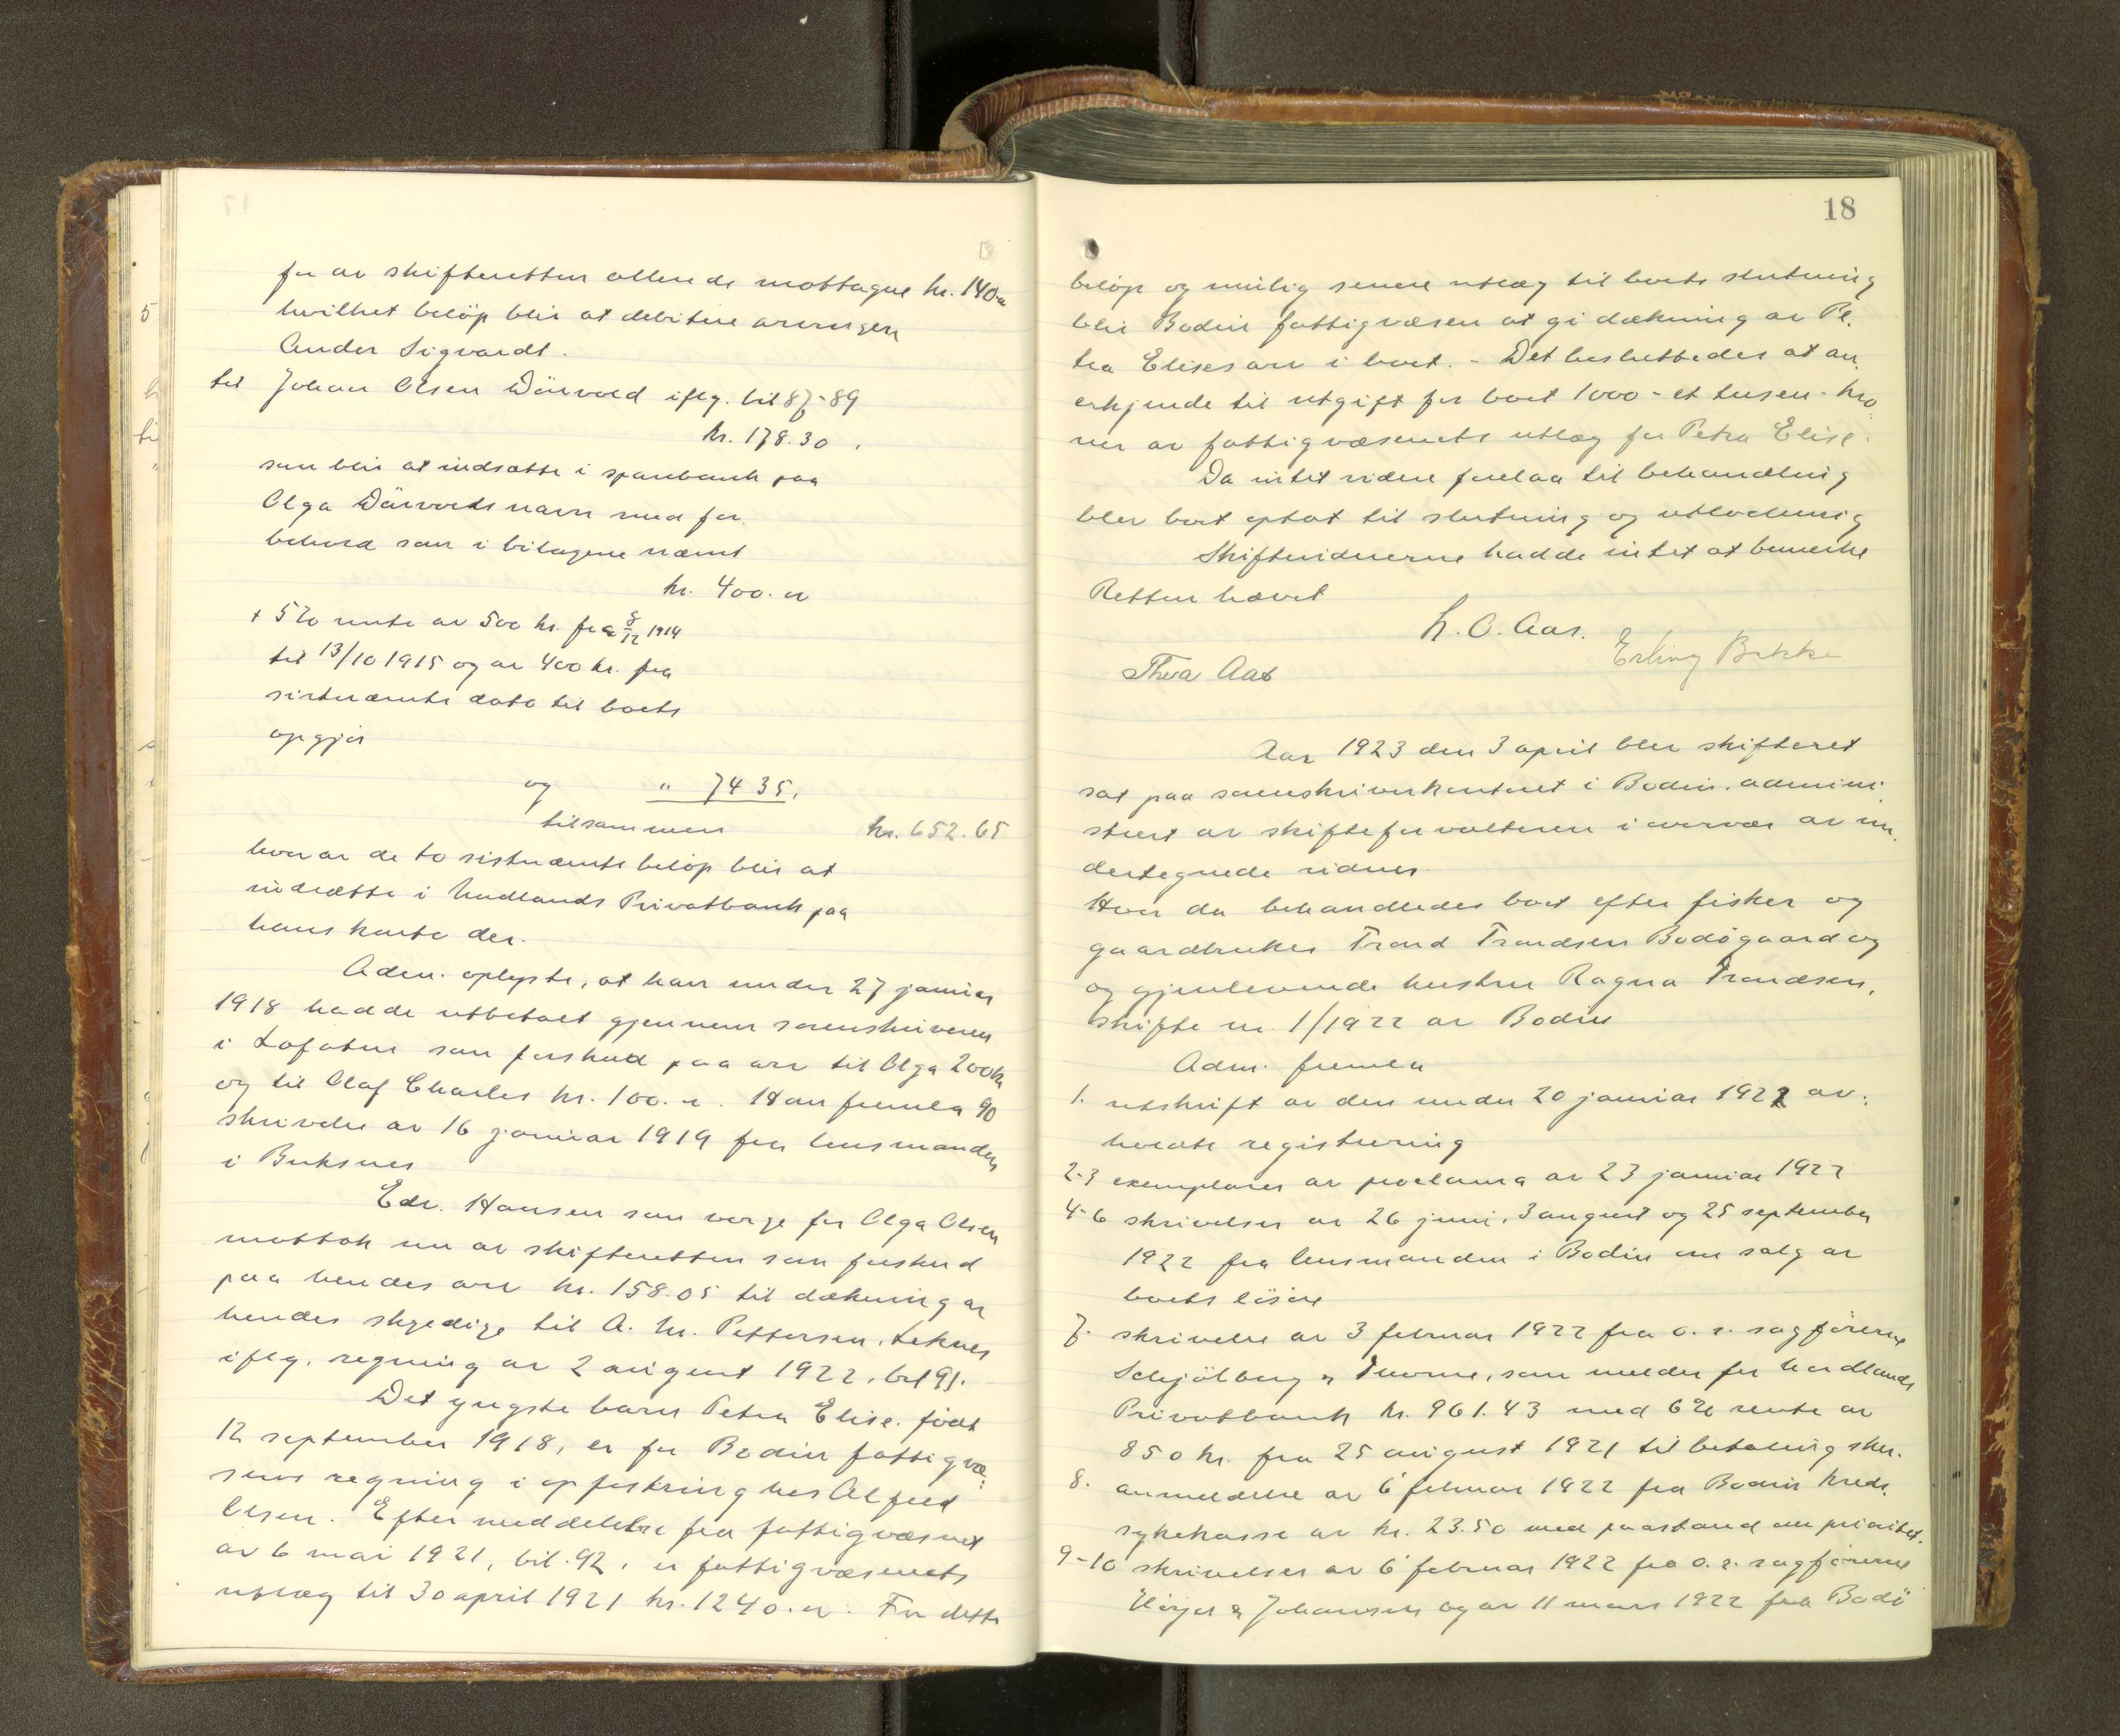 for av skifteretten allerede mottagne kr. 140.-
hvilket beløp blir at debitere arvingen
Ander Sigvardt.
til Johan Olsen Dürvold iflg. bil 87-89
kr. 178.30.
som blir at indsætte i sparebank paa
Olga navn med for-
behold som i bilagene nævnt
kr. 400.-
+ 5% rente av 500 kr. fra 8/12 1914
til 13/10 1915 og av 400 kr. fra
sistnævnte dato til boets
opgjør
og " 74 35.
tilsammen kr. 652.65
hvorav de to sistnævnte beløp blir at
indsætte i Nordlands Privatbank paa
hans konto der.
Adm. oplyste, at han under 27 januar
1918 hadde utbetalt gjennem sorenskriveren
i Lofoten som forskud paa arv til Olga 200 kr
og til Olaf Charles kr. 100.-. Han fremla 90
skrivelse av 16 januar 1919 fra lensmanden
i Buksnes
Edv. Hansen som verge for Olga Olsen
mottok nu av skifteretten som forskud
paa hendes arv kr. 158.05 til dækning av
hendes skyldige til A. M. Pettersen, Leknes
iflg. regning av 2 august 1922, bil 91.
Det yngste barn Petra Elise, født
12 september 1918, er for Bodin fattigvæ-
sens regning i opfostring hos Alfred
Olsen. Efter meddelelse fra fattigvæsenet
av 6 mai 1921, bil. 92, er fattigvæsenets
utlæg til 30 april 1921 kr. 1240.-. For dette
18
beløp og mulig senere utlæg til boets slutning
blir Bodin fattigvæsen at gi dækning av Pe-
tra Elises arv i boet. - Det besluttedes at an-
erkjende til utgift for boet 1000 - et tusen - kro-
ner av fattigvæsenets utlæg for Petra Elise.
Da intet videre forelaa til behandling
blev boet optat til slutning og utlodning
Skiftevidnerne hadde intet at bemerke
Retten hævet
L. O. Aas.
Erling Bakke
Thora Aas
Aar 1923 den 3 april blev skifteret
sat paa sorenskriverkontoret i Bodin, admini-
strert av skifteforvalteren i overvær av un-
dertegnede vidner.
Hvor da behandledes boet efter fisker og
gaardbruker Trond Trondsen Bodøgaard og
og gjenlevende hustru Ragna Trondsen,
skifte nr. 1/1922 av Bodin
Adm. fremla
1. utskrift av den under 20 januar 1922 av-
holdte registrering
2-3 exemplarer av proclama av 23 januar 1922
4-6 skrivelser av 26 juni, 3 august og 25 september
1922 fra lensmanden i Bodin om salg av
boets løsøre
7. skrivelse av 3 februar 1922 fra o. r. sagførerne
Schjølberg & som melder for Nordlands
Privatbank kr. 961.43 med 6% rente av
850 kr. fra 25 august 1921 til betaling sker.
8. anmeldelse av 6 februar 1922 fra Bodin kreds-
sykekasse av kr. 23.50 med paastand om prioritet.
9-10 skrivelser av 6 februar 1922 fra o. r. sagførerne
& Johansen og av 11 mars 1922 fra Bodø